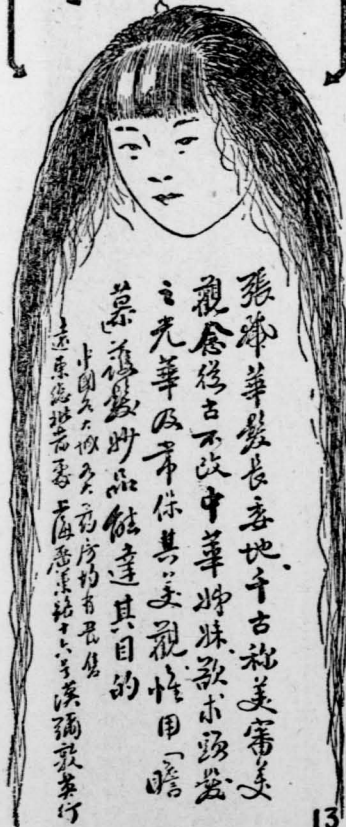 張麗華髮長委地千古称美審美
觀念從古不改中華姊妹欲求頭髮
之光華及常保其美觀惟用「瞻
慕護髮妙品能達其目的
中國各大城各大藥房均有畏售
遠東總批發處上海 十六号漢彌敦英行
13